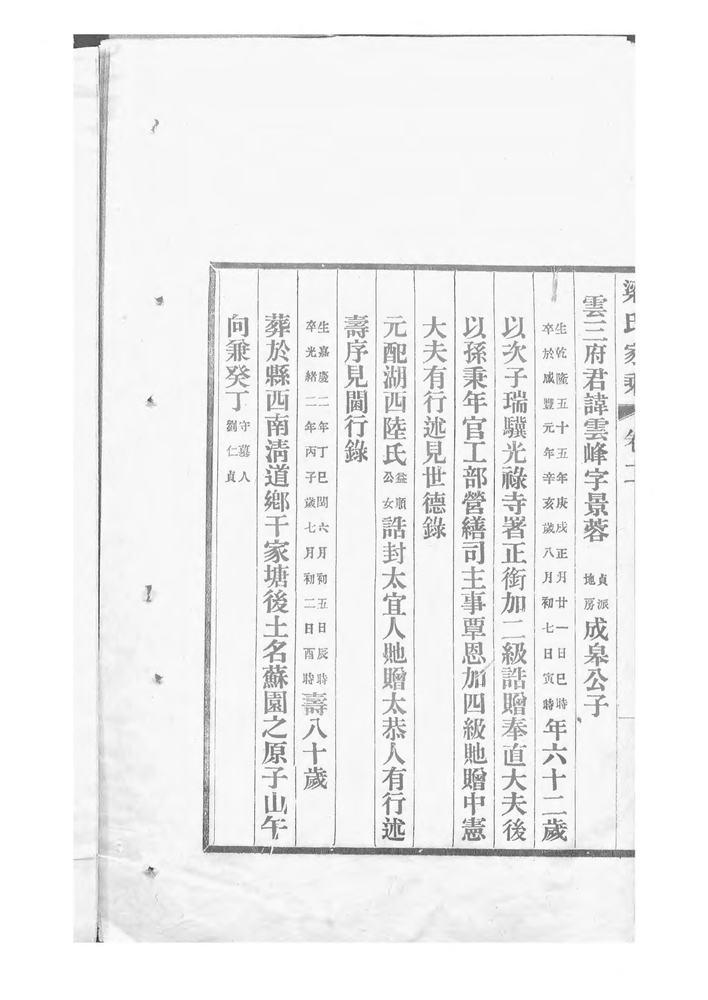 梁氏家乘 卷二
雲三府君諱雲峰字景蓉 貞派地房 成皋公子
生乾隆五十五年庚戌正月廿一日巳時卒於咸豐元年辛亥歲八月初七日寅時 年六十二歲
以次子瑞驥光祿寺署正銜加二級誥贈奉直大夫後
以孫秉年官工部營繕司主事覃恩加四級貤贈中憲
大夫有行述見世德錄
元配湖西陸氏 益順公女 誥封太宜人貤贈太恭人有行述
壽序見閫行錄
生嘉慶二年丁巳閏六月初五日辰時卒光緒二年丙子歲七月初二日酉時 壽八十歲
葬於縣西南淸道鄉干家塘後土名蘇園之原子山午
向兼癸丁 守墓人劉仁貞